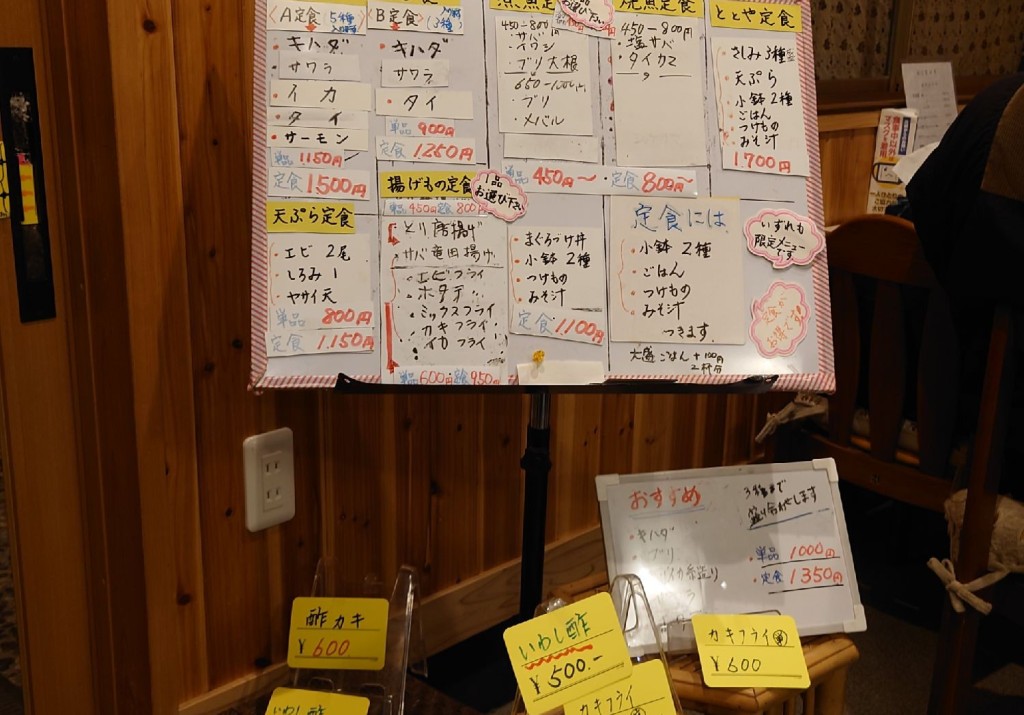 A定食 5種
B定食 (3種)
キハダ
サワラ
イカ
タイ
サーモン
単品 1150円
定食 1,500円
キハダ
サワラ
タイ
単品 900円
定食 1,250円
450-800円
・サバ
・イワシ
・ブリ大根
・ブリ
・メバル
お選び下さい
焼魚定食
450-800円
・塩サバ
・タイカマ
単品 450円～・定食 800円～
ととや定食
さしみ3種
天ぷら
小鉢2種
ごはん
つけもの
みそ汁
1,700円
天ぷら定食
エビ 2尾
しろみ 1
ヤサイ天
単品 800円
定食 1,150円
揚げもの定食
1品
お選び下さい
単品 450円 定食 800円
とり唐揚げ
サバ竜田揚げ
エビフライ
ホタテ〃
ミックスフライ
カキフライ
イカフライ
単品 600円 定食 950円
まぐろづけ丼
小鉢 2種
つけもの
みそ汁
定食 1,100円
定食には
・小鉢 2種
・ごはん
・つけもの
・みそ汁
つきます
大盛ごはん +100円
いずれも
限定メニュー
です
定食が
お得です
おすすめ
3種まで
盛り合わせします
・キハダ
・ブリ
・単品 1000円
・定食 1350円
酢カキ
¥600
いわし酢
¥500.-
カキフライ
¥600
いわし酢
カキフライ